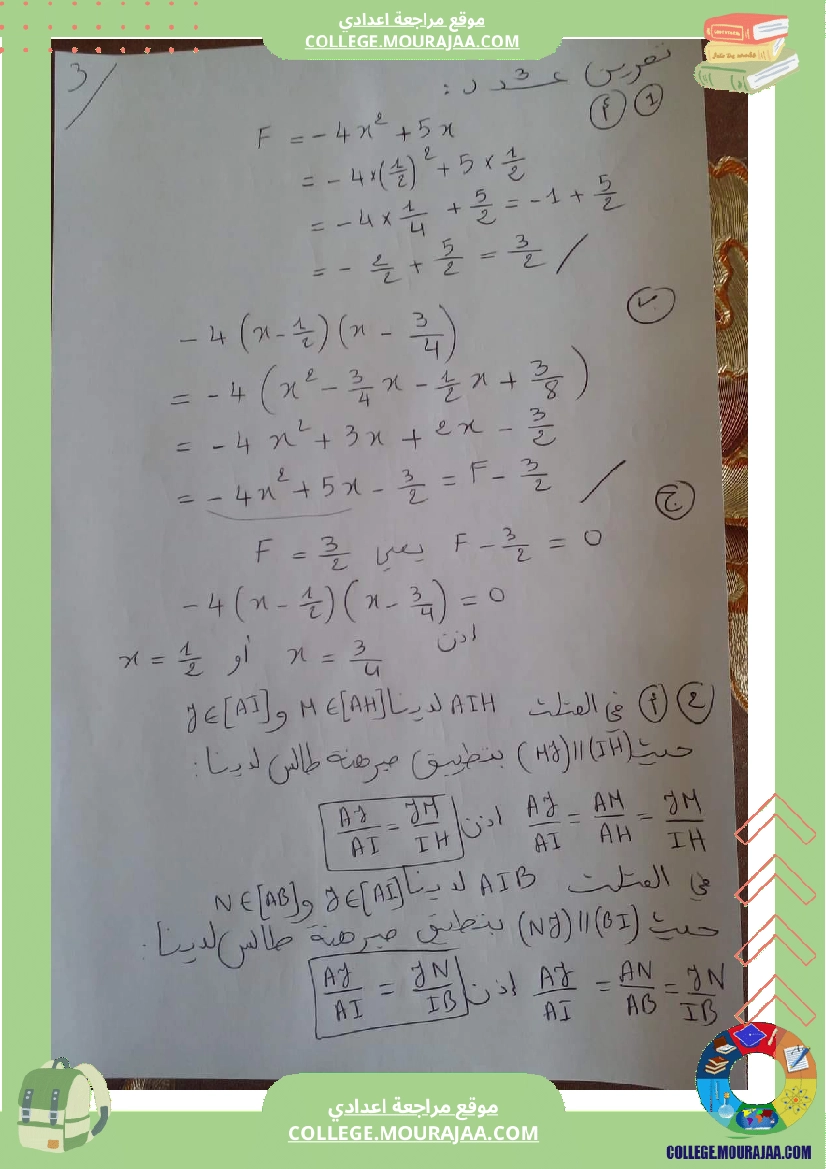 موقع مراجعة اعدادي
COLLEGE.MOURAJAA.COM
3/
تمرين عدد 3 :
1 أ
F = - 4x² + 5x
= - 4×(1/2)² + 5 × 1/2
= - 4 × 1/4 + 5/2 = - 1 + 5/2
= - 2/2 + 5/2 = 3/2 /
ب
- 4 (x - 1/2)(x - 3/4)
= - 4 (x² - 3/4 x - 1/2 x + 3/8)
= - 4 x² + 3x + 2x - 3/2
= - 4x² + 5x - 3/2 = F - 3/2 /
ج
F = 3/2 يعني F - 3/2 = 0
- 4 (x - 1/2)(x - 3/4) = 0
اذن
x = 1/2 أو x = 3/4
2 أ في المثلث AIH لدينا M ∈ [AH] و J ∈ [AI]
حيث (MJ) // (IH) بتطبيق مبرهنة طالس لدينا :
AJ/AI = AM/AH = JM/IH اذن AJ/AI = JM/IH
في المثلث AIB لدينا J ∈ [AI] و N ∈ [AB]
حيث (NJ) // (BI) بتطبيق مبرهنة طالس لدينا :
AJ/AI = AN/AB = JN/IB اذن AJ/AI = JN/IB
موقع مراجعة اعدادي
COLLEGE.MOURAJAA.COM
COLLEGE.MOURAJAA.COM